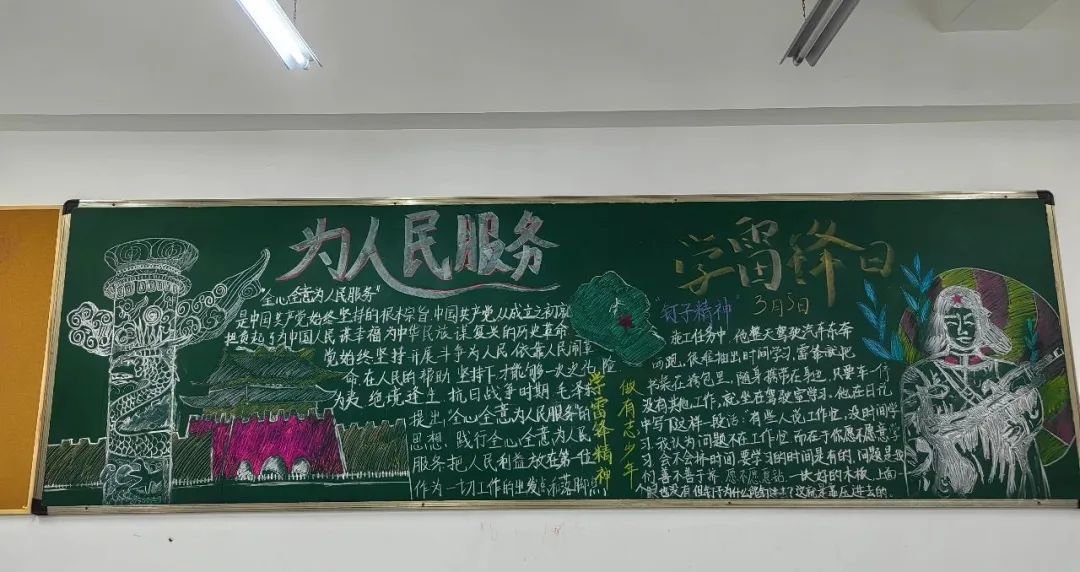 为人民服务
"全心全意为人民服务"
是中国共产党始终坚持的根本宗旨 中国共产党从成立之初就
担负起了为中国人民谋幸福为中华民族谋复兴的历史革命
党始终坚持开展斗争为人民 依靠人民闹革
命在人民的帮助 坚持下才能够一次次化险
为夷 绝境逢生 抗日战争时期 毛泽东
提出 全心全意为人民服务的
思想 践行全心全意为人民
服务把人民利益放在第一位
作为一切工作的出发点和落脚点
学雷锋精神
做有志少年
学雷锋日
3月5日
"钉子精神"
施工任务中,他整天驾驶汽车东奔
西跑,很难抽出时间学习,雷锋就把
书装在挎包里,随身携带在身边,只要车一停
没有其他工作,就坐在驾驶室学习.他在日记
中写下这样一段话:有些人说工作忙,没时间学
习 我认为问题不在工作忙 而在于你愿不愿意学
习会不会挤时间 要学习的时间是有的 问题是我
们善不善于挤 愿不愿意钻.一块好的木板,上面
个眼也没有 但钉子为什么能钉进去?这就是靠压进去的.